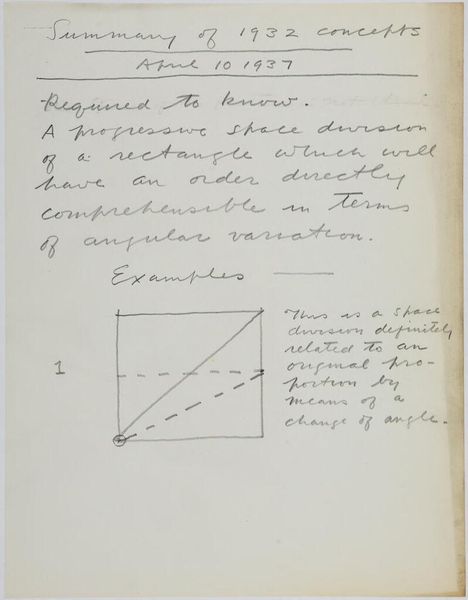 Summary of 1932 concepts
April 10 1937
Required to know.
A progressive space division
of a rectangle which will
have an order directly
comprehensible in terms
of angular variation.
Examples
This is a space
division definitely
related to an
1
original pro-
portion by
means of a
change of angle.